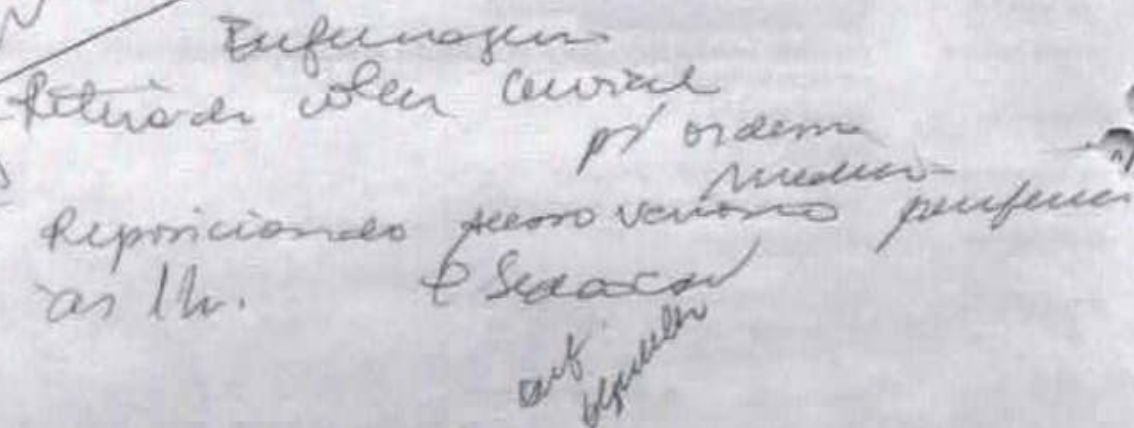 Enfermagem
Retirado colar cervical
p/ ordem
médica
Reposicionado acesso venoso periféric
às 1h. p/ Sedação
enf